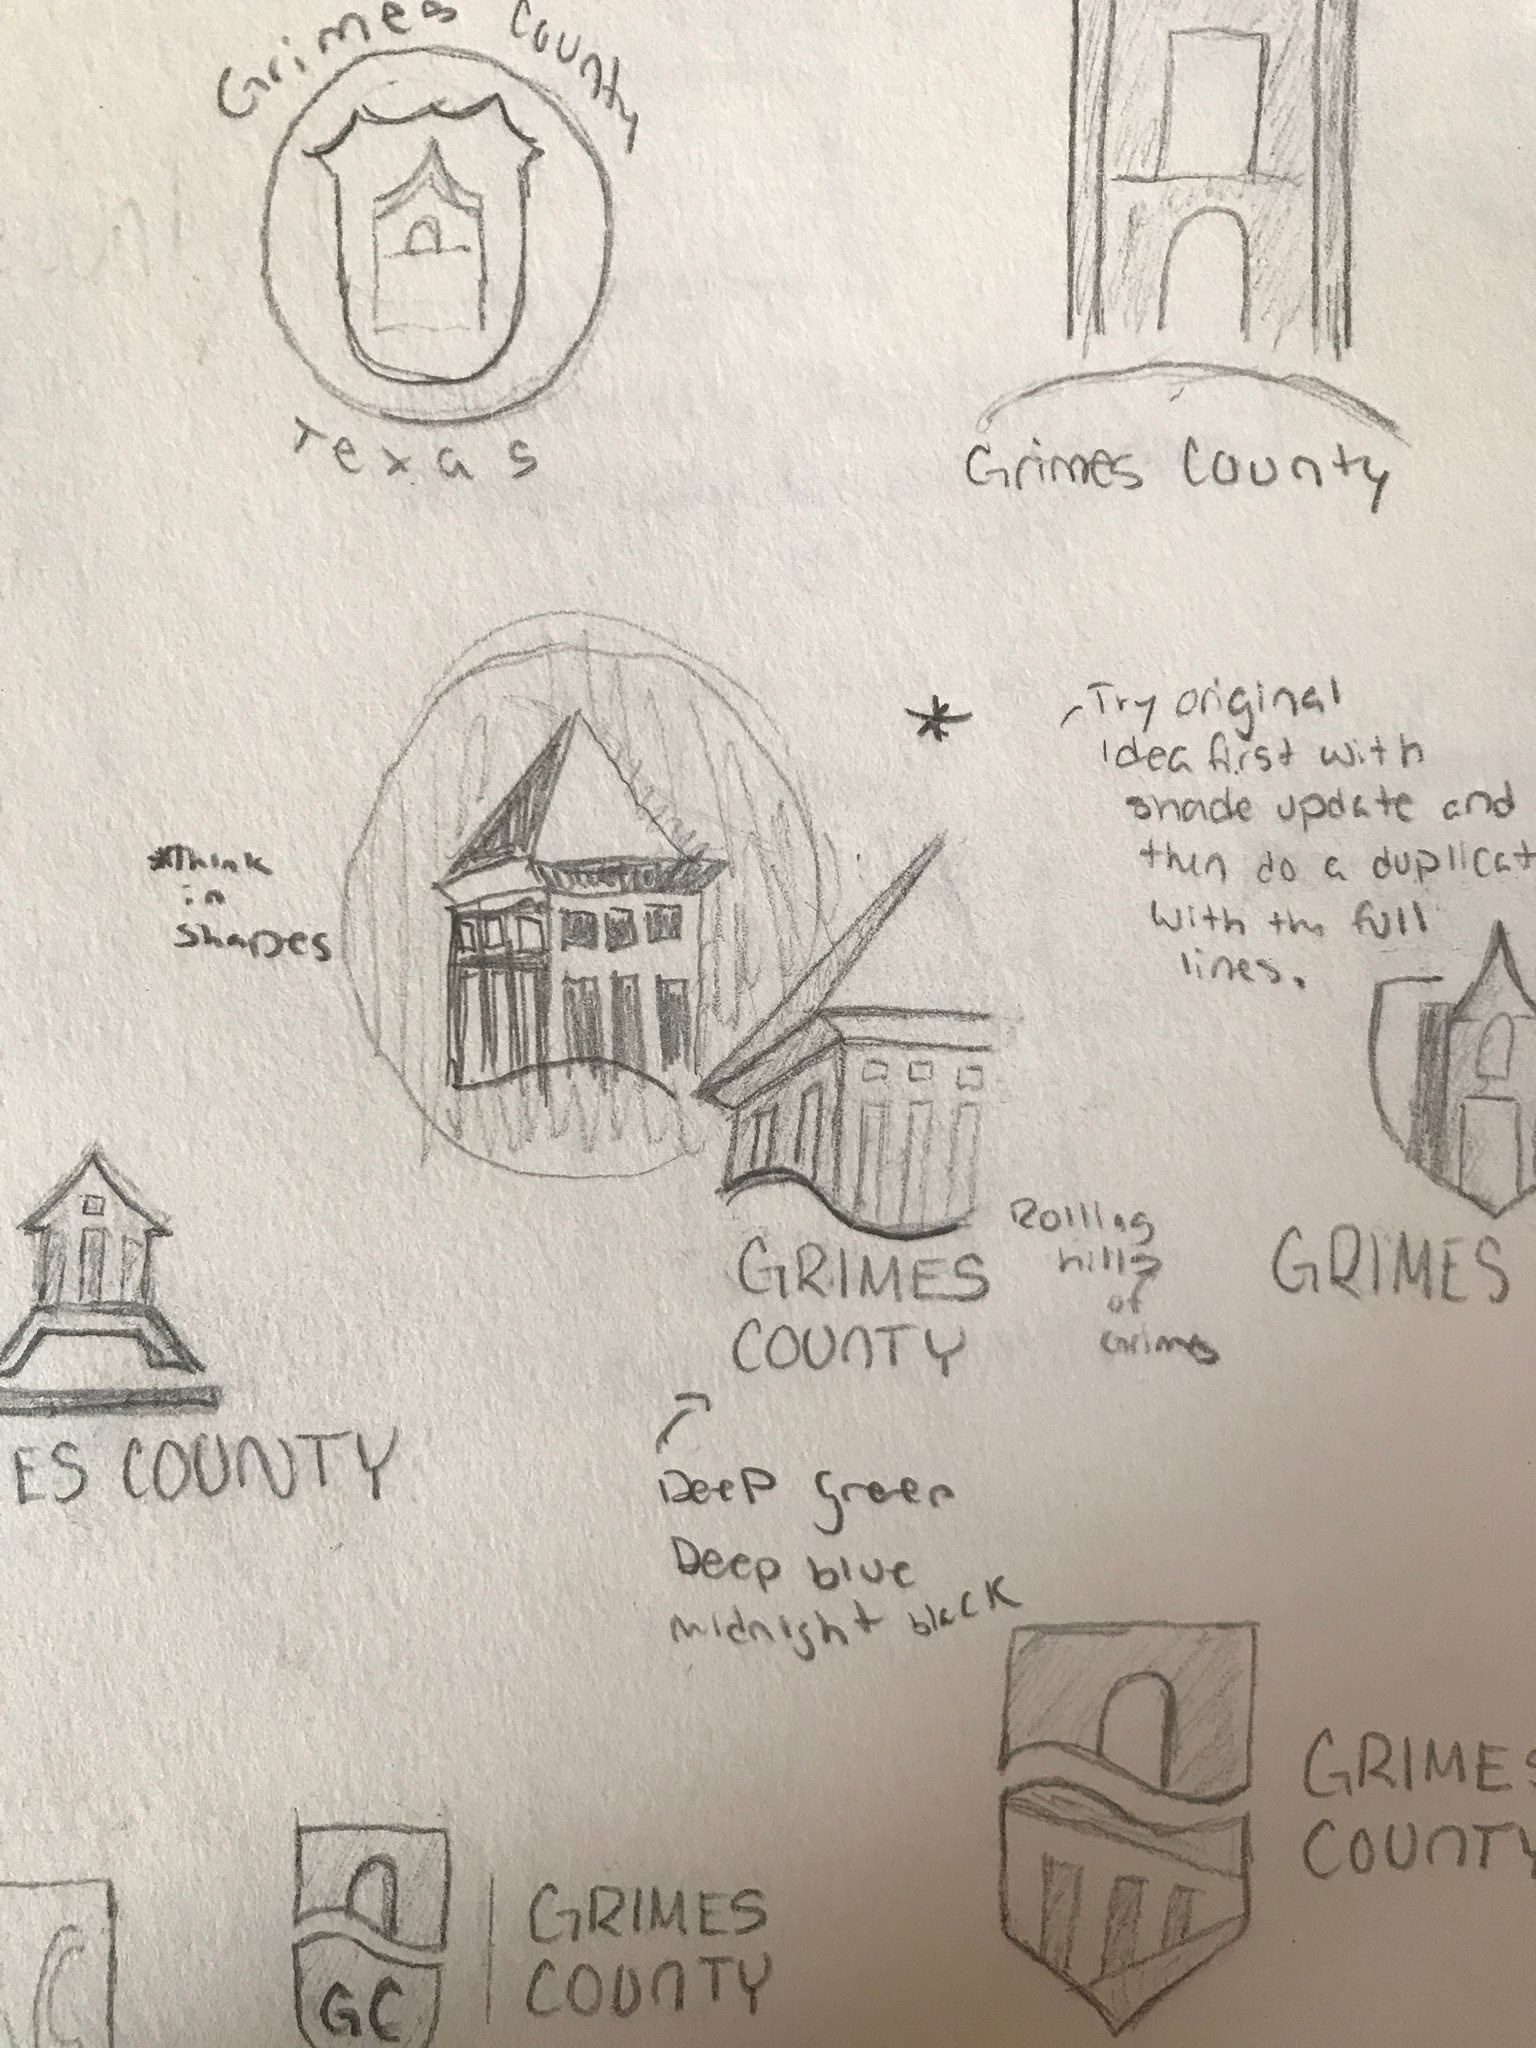 Grimes County
Texas
Grimes County
*
-Try original
idea first with
shade update and
then do a duplicat
with the full
lines.
*Think
in
shapes
GRIMES
COUNTY
Rolling
hills
of
Grimes
GRIMES
ES COUNTY
Deep green
Deep blue
midnight black
GRIMES
COUNTY
GRIMES
COUNTY
GC
C